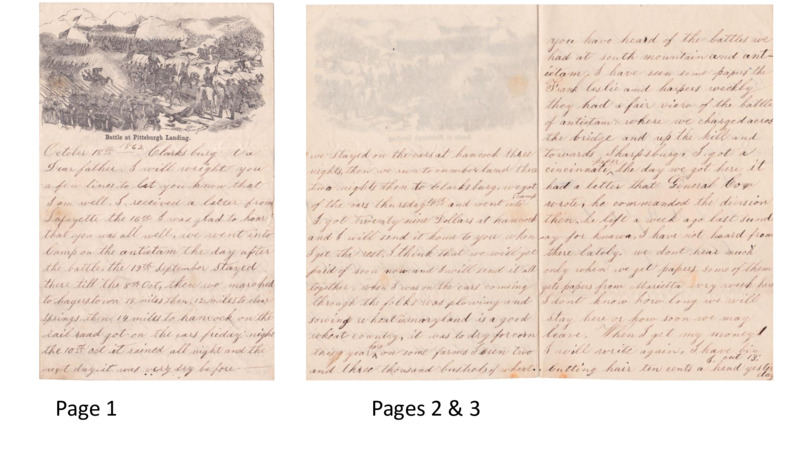 Battle at Pittsburgh Landing.
October 18th 1862 Clarksburg Va
Dear father, I will wright you
a few lines to let you know that
I am well, I received a letter from
Lafayette the 16th I was glad to hear
that you was all well, we went into
camp on the antiotam the day after
the battle, the 19th September stayed
there till the 8th Oct, then we marched
to hagerstown 18 miles then 12 miles to clear
springs, then 19 miles to hancock on the
rail raod got on the cars friday night
the 10th oct it rained all night and the
next day it was very dry before
we stayed on the cars at hancock three
nights, then we run to cumberland there
two nights then to Clarksburg, we got
of the cars thursday and went into camp
I got twenty nine Dollars at hancock
and I will send it home to you when
I get the rest, I think that we will get
paid of soon now and I will send it all
together, when I was on the cars coming
through the folks was plowing and
sowing wheat in maryland is a good
wheat country, it was to dry for corn
this year on some farms I seen two
and three thousand bushels of wheat
you have heard of the battles we
had at south mountain and ant-
iotam, I have seen some papers the
Frank leslie and harpers weekly
they had a fair view of the battle
of antiotam where we charged across
the bridge and up the hill and
towards Sharpsburg, I got a
cincinnati paper the day we got here it
had a letter that General Cox
wrote, he commanded the division
then, he left a week ago last sund
ay for I have not heard from
there lately, we dont hear much
only when we get papers some of them
gets papers from Marietta every week here
I dont know how long we will
stay here or how soon we may
leave. When I get my money
I will write again, I have bin
cutting hair ten cents a head yester
day
Page 1
Pages 2 & 3